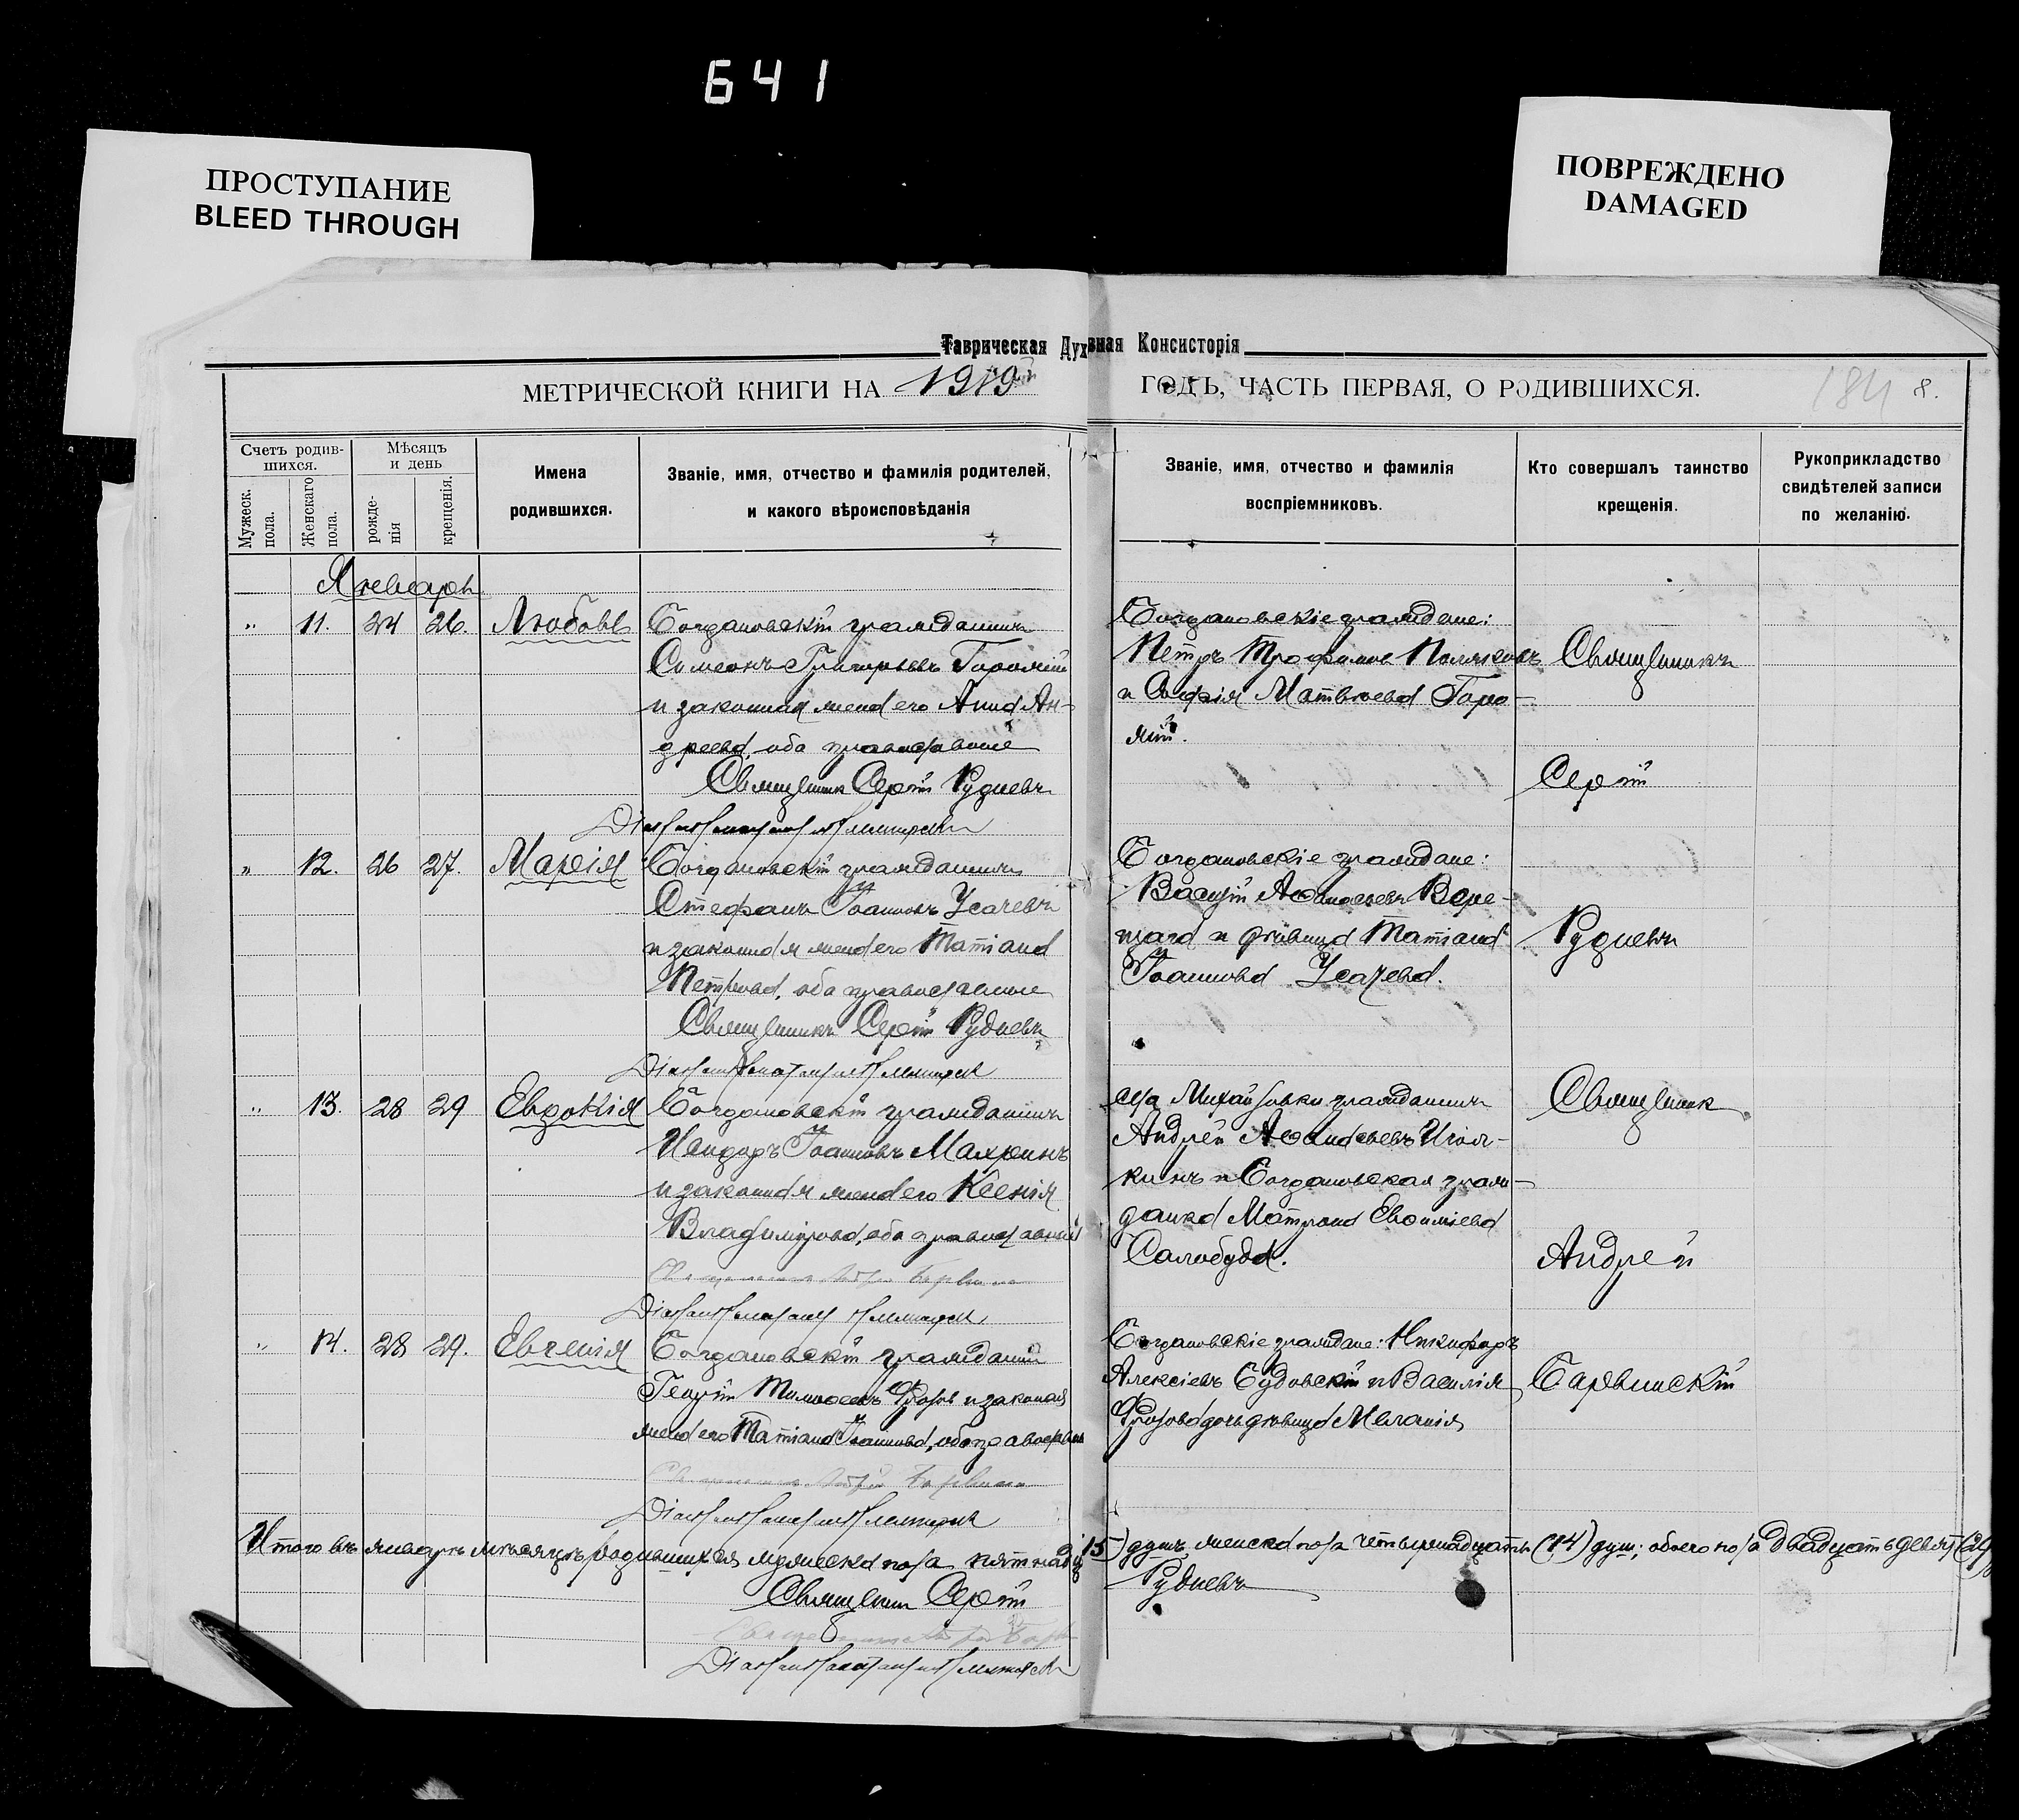 641
ПРОСТУПАНИЕ
BLEED THROUGH
ПОВРЕЖДЕНО
DAMAGED
Таврическая Духовная Консисторія
МЕТРИЧЕСКОЙ КНИГИ НА 1919 ГОДЪ, ЧАСТЬ ПЕРВАЯ, О РОДИВШИХСЯ.
184 8.
Счетъ родив-
шихся.
Мужеск.
пола.
Женскаго
пола.
Мѣсяцъ
и день
рожде-
нія
крещенія.
Имена
родившихся.
Званіе, имя, отчество и фамилія родителей,
и какого вѣроисповѣданія
Званіе, имя, отчество и фамилія
воспріемниковъ.
Кто совершалъ таинство
крещенія.
Рукоприкладство
свидѣтелей записи
по желанію.
Январь
" 11. 24 26. Любовь
Богдановскій гражданинъ
Симеонъ Григорьевъ
и законная жена его Анна Ан-
дреева, оба православные
Священник Сергій Рудневъ
Богдановскіе граждане:
Петръ Трофимов Поляковъ
и Софія Матвѣева
Священникъ
Сергій
" 12. 26 27. Марія
Богдановскій гражданинъ
Стефанъ Іоанновъ Усачевъ
и законная жена его Татіана
Петрова, оба православные
Священникъ Сергій Рудневъ
Богдановскіе граждане:
Василій Аѳанасьевъ Вере-
щага и дѣвица Татіана
Іоаннова Усачева.
Рудневъ
" 13. 28 29 Евдокія
Богдановскій гражданинъ
Исидоръ Іоанновъ Махринъ
и законная жена его Ксенія
Владимірова, оба православные
села Михайловки гражданинъ
Андрей Аѳанасьевъ Игол-
кинъ и Богдановская граж-
данка Матрона Евѳиміева
Салобуда.
Священник
Андрей
" 14. 28 29. Евгенія
Богдановскій гражданин
Георгій Тимоѳеевъ Фролов и законная
жена его Татіана Іоаннова, оба православные
Богдановскіе граждане: Никифоръ
Алексіевъ Судовскій и Василія
Фролова дочь дѣвица Меланія
Барвинскій
Итого въ январѣ мѣсяцѣ родившихся мужеска пола пятнадц 15) душъ, женска пола четырнадцать (14) душ; обоего пола двадцать девять (29)
Священник Сергій Рудневъ